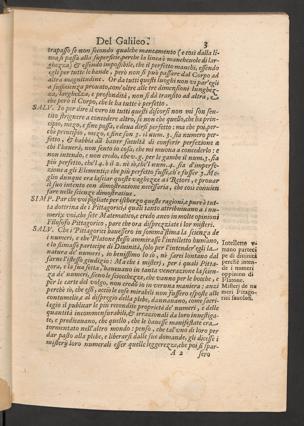 Del Galileo. 3
trapasso se non secondo qualche mancamento (e cui dalla li-
nea si passa alla superficie, perche la linea è manchevole di lar-
ghezza) & essendo impossibile, che il perfetto manchi, essendo
egli per tutte le bande, però non si può passare dal Corpo ad
altra magnitudine. Or da tutti questi luoghi non vi par'egli
a sufficienza provato, com'oltre alle tre dimensioni lunghez-
za, larghezza, e profondità, non si dà transito ad altra, &
che però il Corpo, che le hà tutte è perfetto.
SALV. Io per dire il vero in tutti questi discorsi non mi son sen-
tito strignere a concedere altro, se non che quello, che hà prin-
cipio, mezo, e fine possa, e deva dirsi perfetto: ma che poi, per-
che principio, mezo, e fine son 3. il num. 3. sia numero per-
fetto, & habbia da haver facultà di conferir perfezione a
chi l'haverà, non sento io cosa, che mi muova a concederlo: e
non intendo, e non credo, che v. g. per le gambe il num. 3. sia
più perfetto, che'l 4. ò il 2. nè sò, che'l num. 4. sia d'imperfezio-
ne a gli Elementi; e che più perfetto fusse, ch'e' fusser 3. Me-
glio dunque era lasciar queste vaghezze ai Retori, e provar
il suo intento con dimostrazione necessaria, che così convien
fare nelle scienze dimostrative.
SIMP. Par che voi pigliate per ischerzo queste ragioni: e pure è tut-
ta dottrina de i Pittagorici, i quali tanto attribuivano a i nu-
meri; e voi, che sete Matematico, e credo anco in molte opinioni
Filosofo Pittagorico, pare che ora disprezziate i lor misteri.
SALV. Che i Pittagorici havessero in somma stima la scienza de
i numeri, e che Platone stesso ammirasse l'intelletto humano,
e lo stimasse partecipe di Divinità, solo per l'intender'egli la
natura de' numeri, io benissimo lo sò, nè sarei lontano dal
farne l'istesso giudizio: Ma che i misterj, per i quali Pitta-
gora, e la sua setta, havevano in tanta venerazione la scien-
za de' numeri, sieno le sciocchezze, che vanno per le bocche, e
per le carte del volgo, non credo io in veruna maniera: anzi
perchè sò, che essi, acciò le cose mirabili non fussero esposte alle
contumelie, e al dispregio della plebe, dannavano, come sacri-
legio il publicar le più recondite proprietà de' numeri, e delle
quantità incommensurabili, & irrazionali da loro investiga-
te, e predicavano, che quello, che le havesse manifestate era
tormentato nell'altro mondo: penso, che tal'uno di loro per
dar pasto alla plebe, e liberarsi dalle sue domande, gli dicesse i
misterj loro numerali esser quelle leggerezze, che poi si spar-
A 2 sero
Intelletto v-
mano parteci
pe di divinità
perchè inten-
de i numeri
oppinion di
Platone.
Misterj de nu
meri Pittago-
rici favolosi.